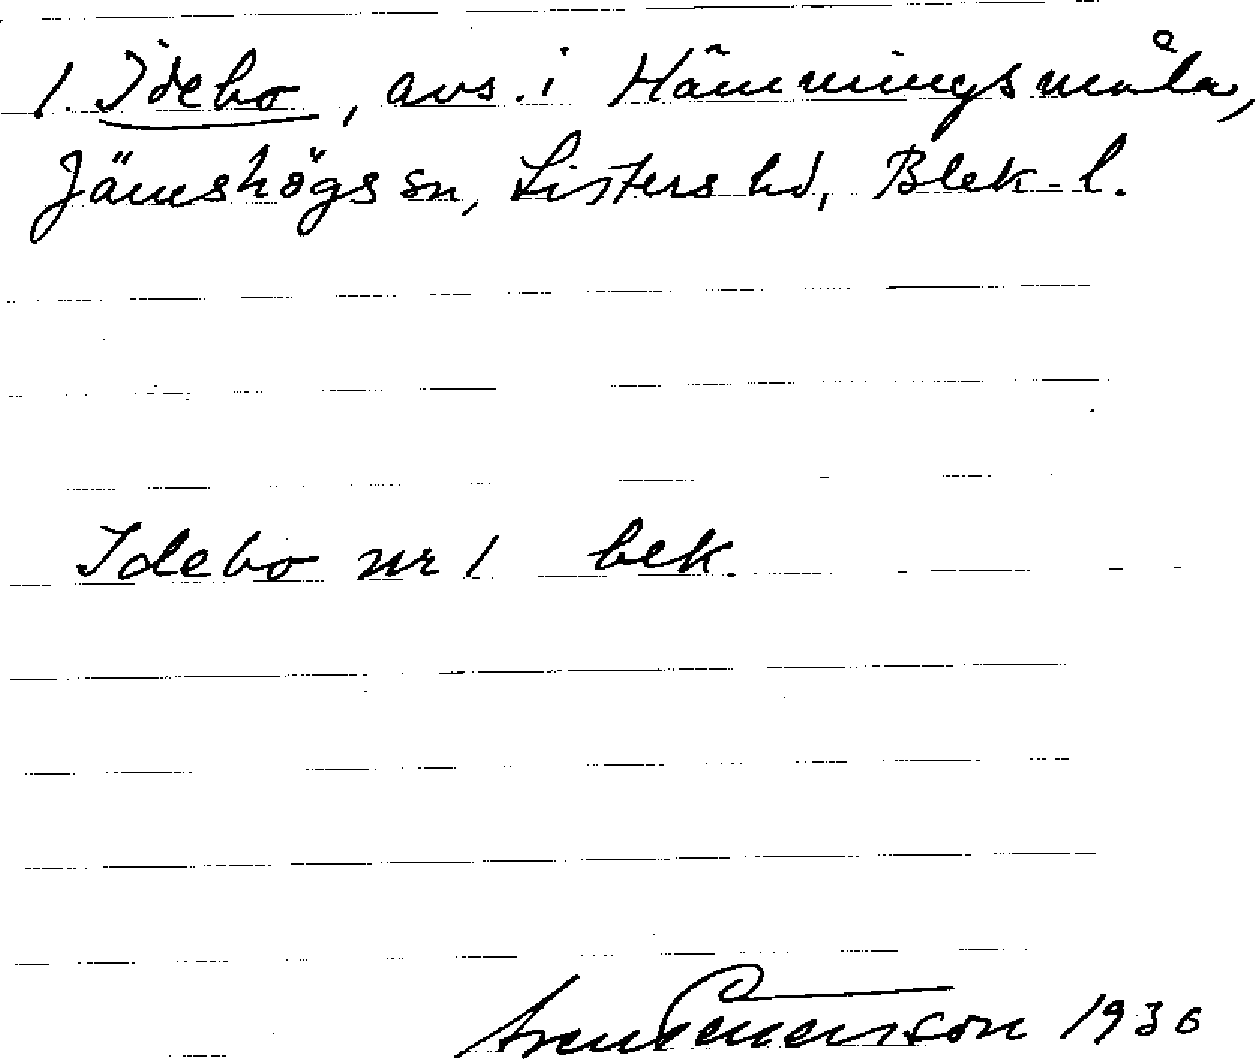 1. Idebo, avs. i Hämmingsmåla,
Jämshögs sn, Listers hd, Blek. l.
Idebo nr 1 bek.
1936